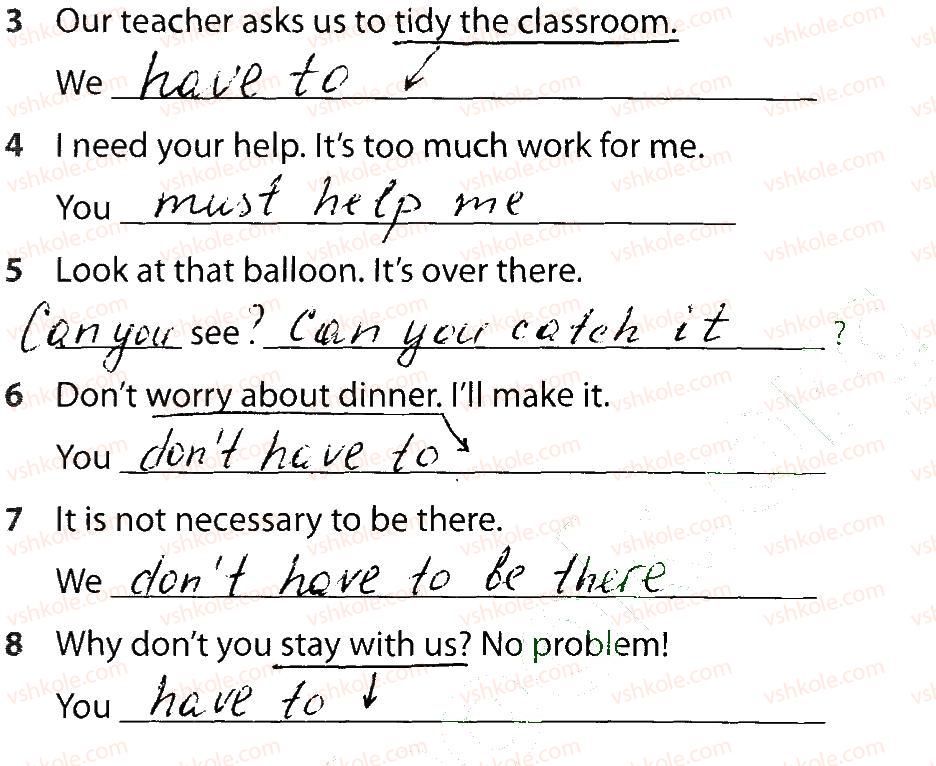 3 Our teacher asks us to tidy the classroom.
We have to
4 I need your help. It's too much work for me.
You must help me
5 Look at that balloon. It's over there.
Can you see? Can you catch it ?
6 Don't worry about dinner. I'll make it.
You don't have to
7 It is not necessary to be there.
We don't have to be there
8 Why don't you stay with us? No problem!
You have to
vshkole.com